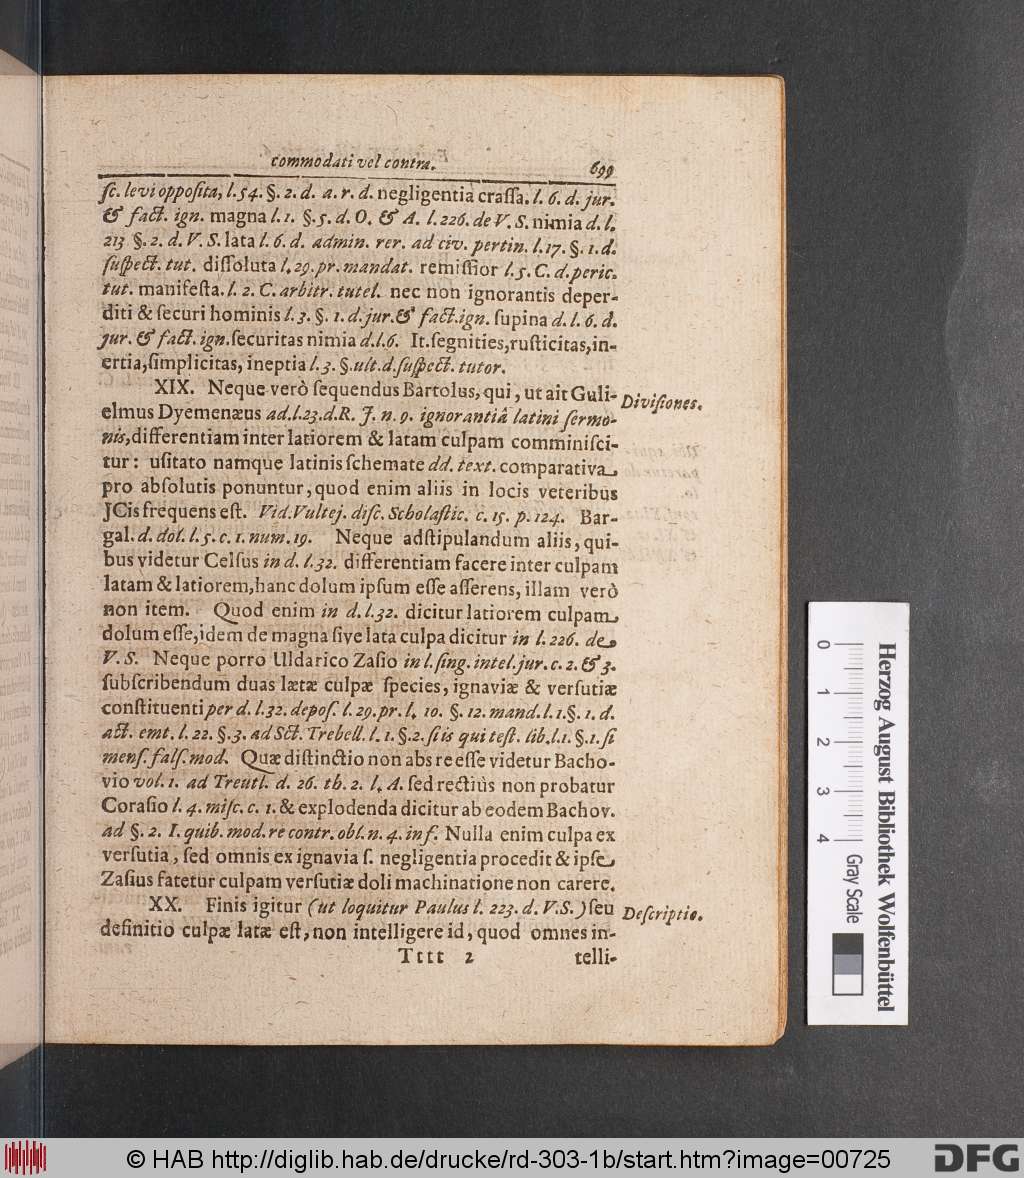 commodati vel contra. 699
ſc. levi oppoſita, l. 54. §. 2. d. a. r. d. negligentia craſſa. l. 6. d. jur.
& fact. ign. magna l. 1. §. 5. d. O. & A. l. 226. de V. S. nimia d. l.
213 §. 2. d. V. S. lata l. 6. d. admin. rer. ad civ. pertin. l. 17. §. 1. d.
ſuſpect. tut. diſſoluta l. 29. pr. mandat. remiſſior l. 5. C. d. peric.
tut. manifeſta. l. 2. C. arbitr. tutel. nec non ignorantis deper-
diti & ſecuri hominis l. 3. §. 1. d. jur. & fact. ign. ſupina d. l. 6. d.
jur. & fact. ign. ſecuritas nimia d. l. 6. It. ſegnities, ruſticitas, in-
ertia, ſimplicitas, ineptia l. 3. §. ult. d. ſuſpect. tutor.
XIX. Neque verò ſequendus Bartolus, qui, ut ait Guli-
Diviſiones.
elmus Dyemenæus ad. l. 23. d. R. J. n. 9. ignorantiâ latini ſermo-
nis, differentiam inter latiorem & latam culpam comminiſci-
tur: uſitato namque latinis ſchemate dd. text. comparativa
pro abſolutis ponuntur, quod enim aliis in locis veteribus
JCis frequens eſt. Vid. Vultej. diſc. Scholaſtic. c. 15. p. 124. Bar-
gal. d. dol. l. 5. c. 1. num. 19. Neque adſtipulandum aliis, qui-
bus videtur Celſus in d. l. 32. differentiam facere inter culpam
latam & latiorem, hanc dolum ipſum eſſe aſſerens, illam verò
non item. Quod enim in d. l. 32. dicitur latiorem culpam
dolum eſſe, idem de magna ſive lata culpa dicitur in l. 226. de
V. S. Neque porro Uldarico Zaſio in l. ſing. intel. jur. c. 2. & 3.
ſubſcribendum duas lætæ culpæ ſpecies, ignaviæ & verſutiæ
conſtituenti per d. l. 32. depoſ. l. 29. pr. l. 10. §. 12. mand. l. 1. §. 1. d.
act. emt. l. 22. §. 3. ad Sct. Trebell. l. 1. §. 2. ſi is qui teſt. lib. l. 1. §. 1. ſi
menſ. falſ. mod. Quæ diſtinctio non abs re eſſe videtur Bacho-
vio vol. 1. ad Treutl. d. 26. th. 2. l. A. ſed rectiùs non probatur
Coraſio l. 4. miſc. c. 1. & explodenda dicitur ab eodem Bachov.
ad §. 2. I. quib. mod. re contr. obl. n. 4. inf. Nulla enim culpa ex
verſutia, ſed omnis ex ignavia ſ. negligentia procedit & ipſe
Zaſius fatetur culpam verſutiæ doli machinatione non carere.
XX. Finis igitur (ut loquitur Paulus l. 223. d. V. S.) ſeu
Deſcriptio.
definitio culpæ latæ eſt, non intelligere id, quod omnes in-
Tttt 2 telli-
0 1 2 3 4
Gray Scale
Herzog August Bibliothek Wolfenbüttel
© HAB http://diglib.hab.de/drucke/rd-303-1b/start.htm?image=00725
DFG